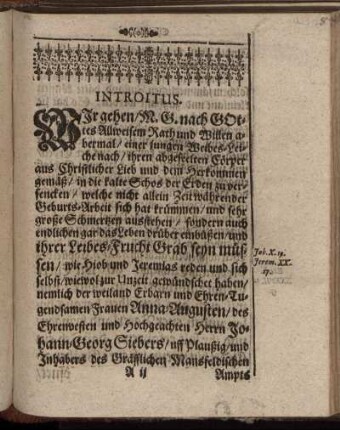 INTROITUS.
WIr gehen/ M. G. nach GOt-
tes Allweisem Rath und Willen a-
bermal/ einer jungen Weibes-Lei-
che nach/ ihren abgeseelten Cörper
aus Christlicher Lieb und dem Herkommen
gemäß/ in die kalte Schos der Erden zu ver-
sencken/ welche nicht allein Zeit währender
Geburts-Arbeit sich hat krümmen/ und sehr
große Schmertzen ausstehen/ sondern auch
endlichen gar das Leben drüber einbüßen/ und
ihrer Leibes-Frucht Grab seyn müs-
sen/ wie Hiob und Jeremias reden und sich
selbst/ wiewol zur Unzeit gewündschet haben/
nemlich der weiland Erbarn und Ehren-Tu-
gendsamen Frauen Anna Augusten/ des
Ehrenvesten und Hochgeachten Herrn Jo-
hann-Georg Siebers/ uff Plaußig/ und
Inhabers des Gräfflichen Mansfeldischen
A ij
Ampts
Job. X. 19.
Jerem. XX.
17.